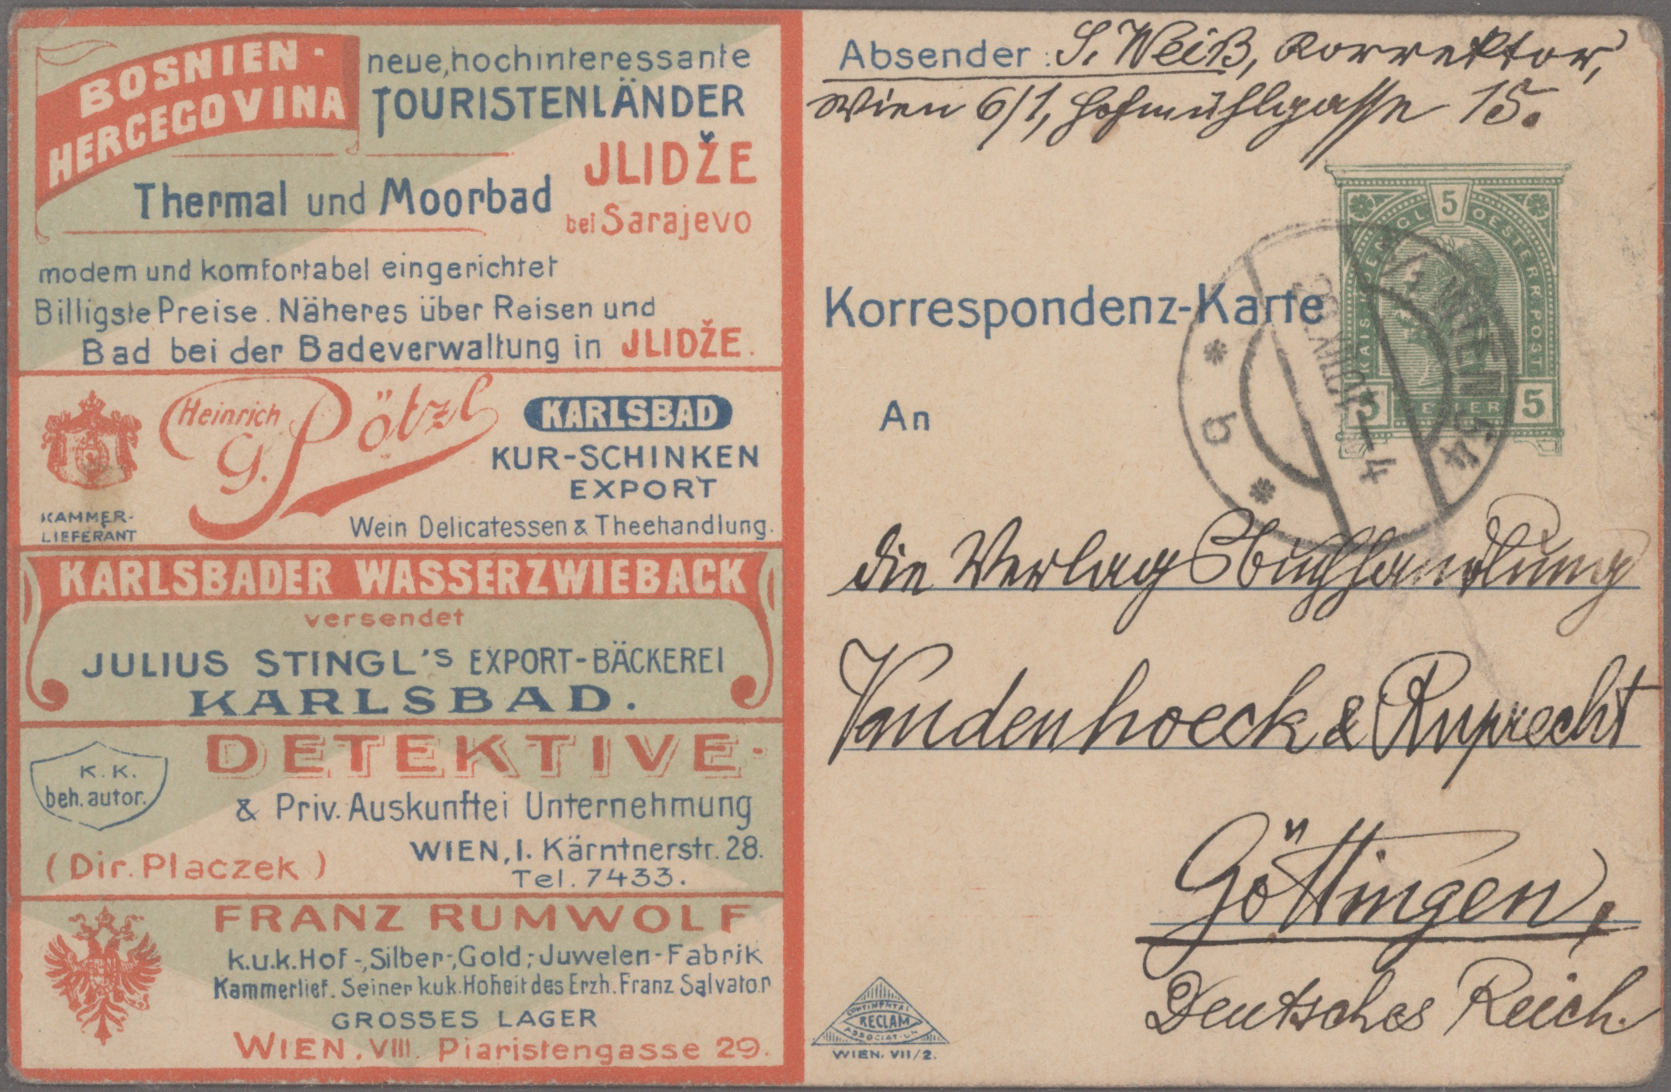 BOSNIEN-
HERCEGOVINA
neue, hochinteressante
TOURISTENLÄNDER
Thermal und Moorbad
JLIDŽE
bei Sarajevo
modern und komfortabel eingerichtet
Billigste Preise. Näheres über Reisen und
Bad bei der Badeverwaltung in JLIDŽE.
KAMMER-
LIEFERANT
Heinrich
G. Pötzl
KARLSBAD
KUR-SCHINKEN
EXPORT
Wein Delicatessen & Theehandlung.
KARLSBADER WASSERZWIEBACK
versendet
JULIUS STINGL'S EXPORT-BÄCKEREI
KARLSBAD.
K. K.
beh. autor.
DETEKTIVE-
& Priv. Auskunftei Unternehmung
(Dir. Placzek)
WIEN, I. Kärntnerstr. 28.
Tel. 7433.
FRANZ RUMWOLF
k.u.k. Hof-, Silber-, Gold-, Juwelen-Fabrik
Kammerlief. Seiner k.u.k. Hoheit des Erzh. Franz Salvator
GROSSES LAGER
WIEN. VIII. Piaristengasse 29.
Absender: S. Weiß, Korrektor,
Wien 6/1, Hofmühlgasse 15.
5
KAIS. KOENIGL. OESTERR. POST
5 HELLER 5
WIEN 54
Korrespondenz-Karte
An
die Verlagsbuchhandlung
Vandenhoeck & Ruprecht
Göttingen,
Deutsches Reich.
CONTINENTAL
RECLAM
ASSOCIATION
WIEN. VII/2.